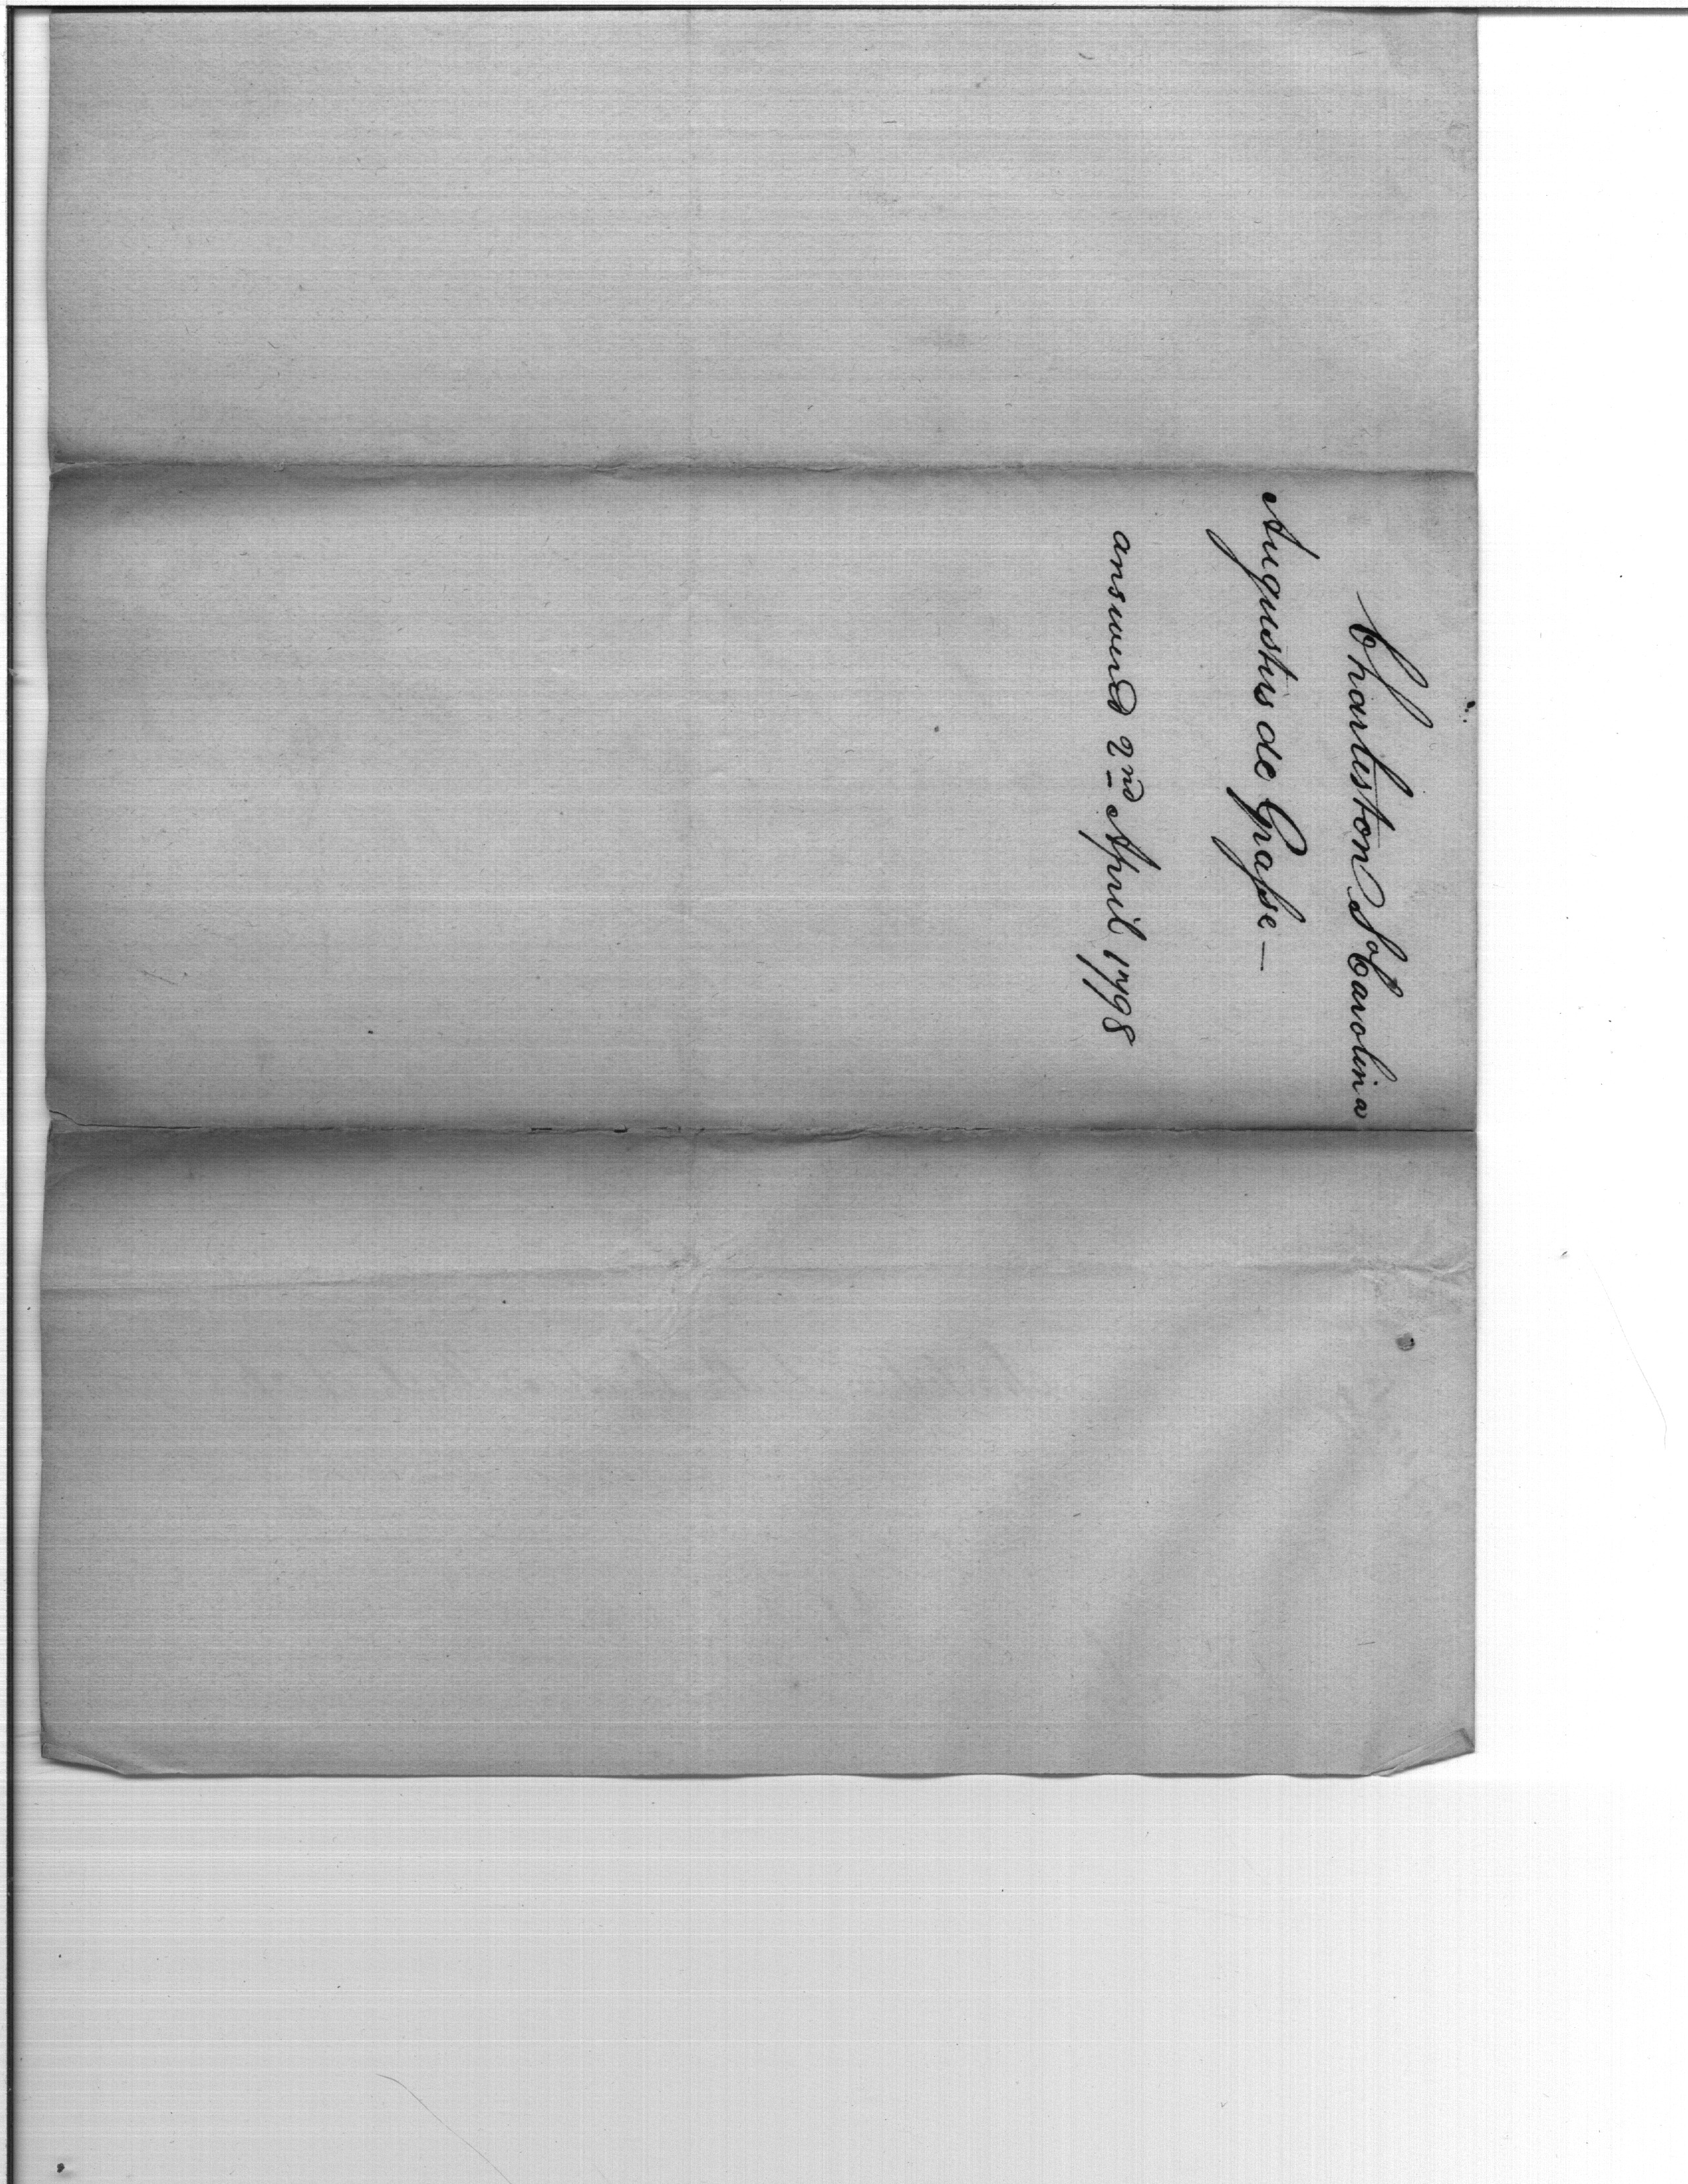 Charleston So Carolina
Augustus de Grasse—
answered 2nd April 1798